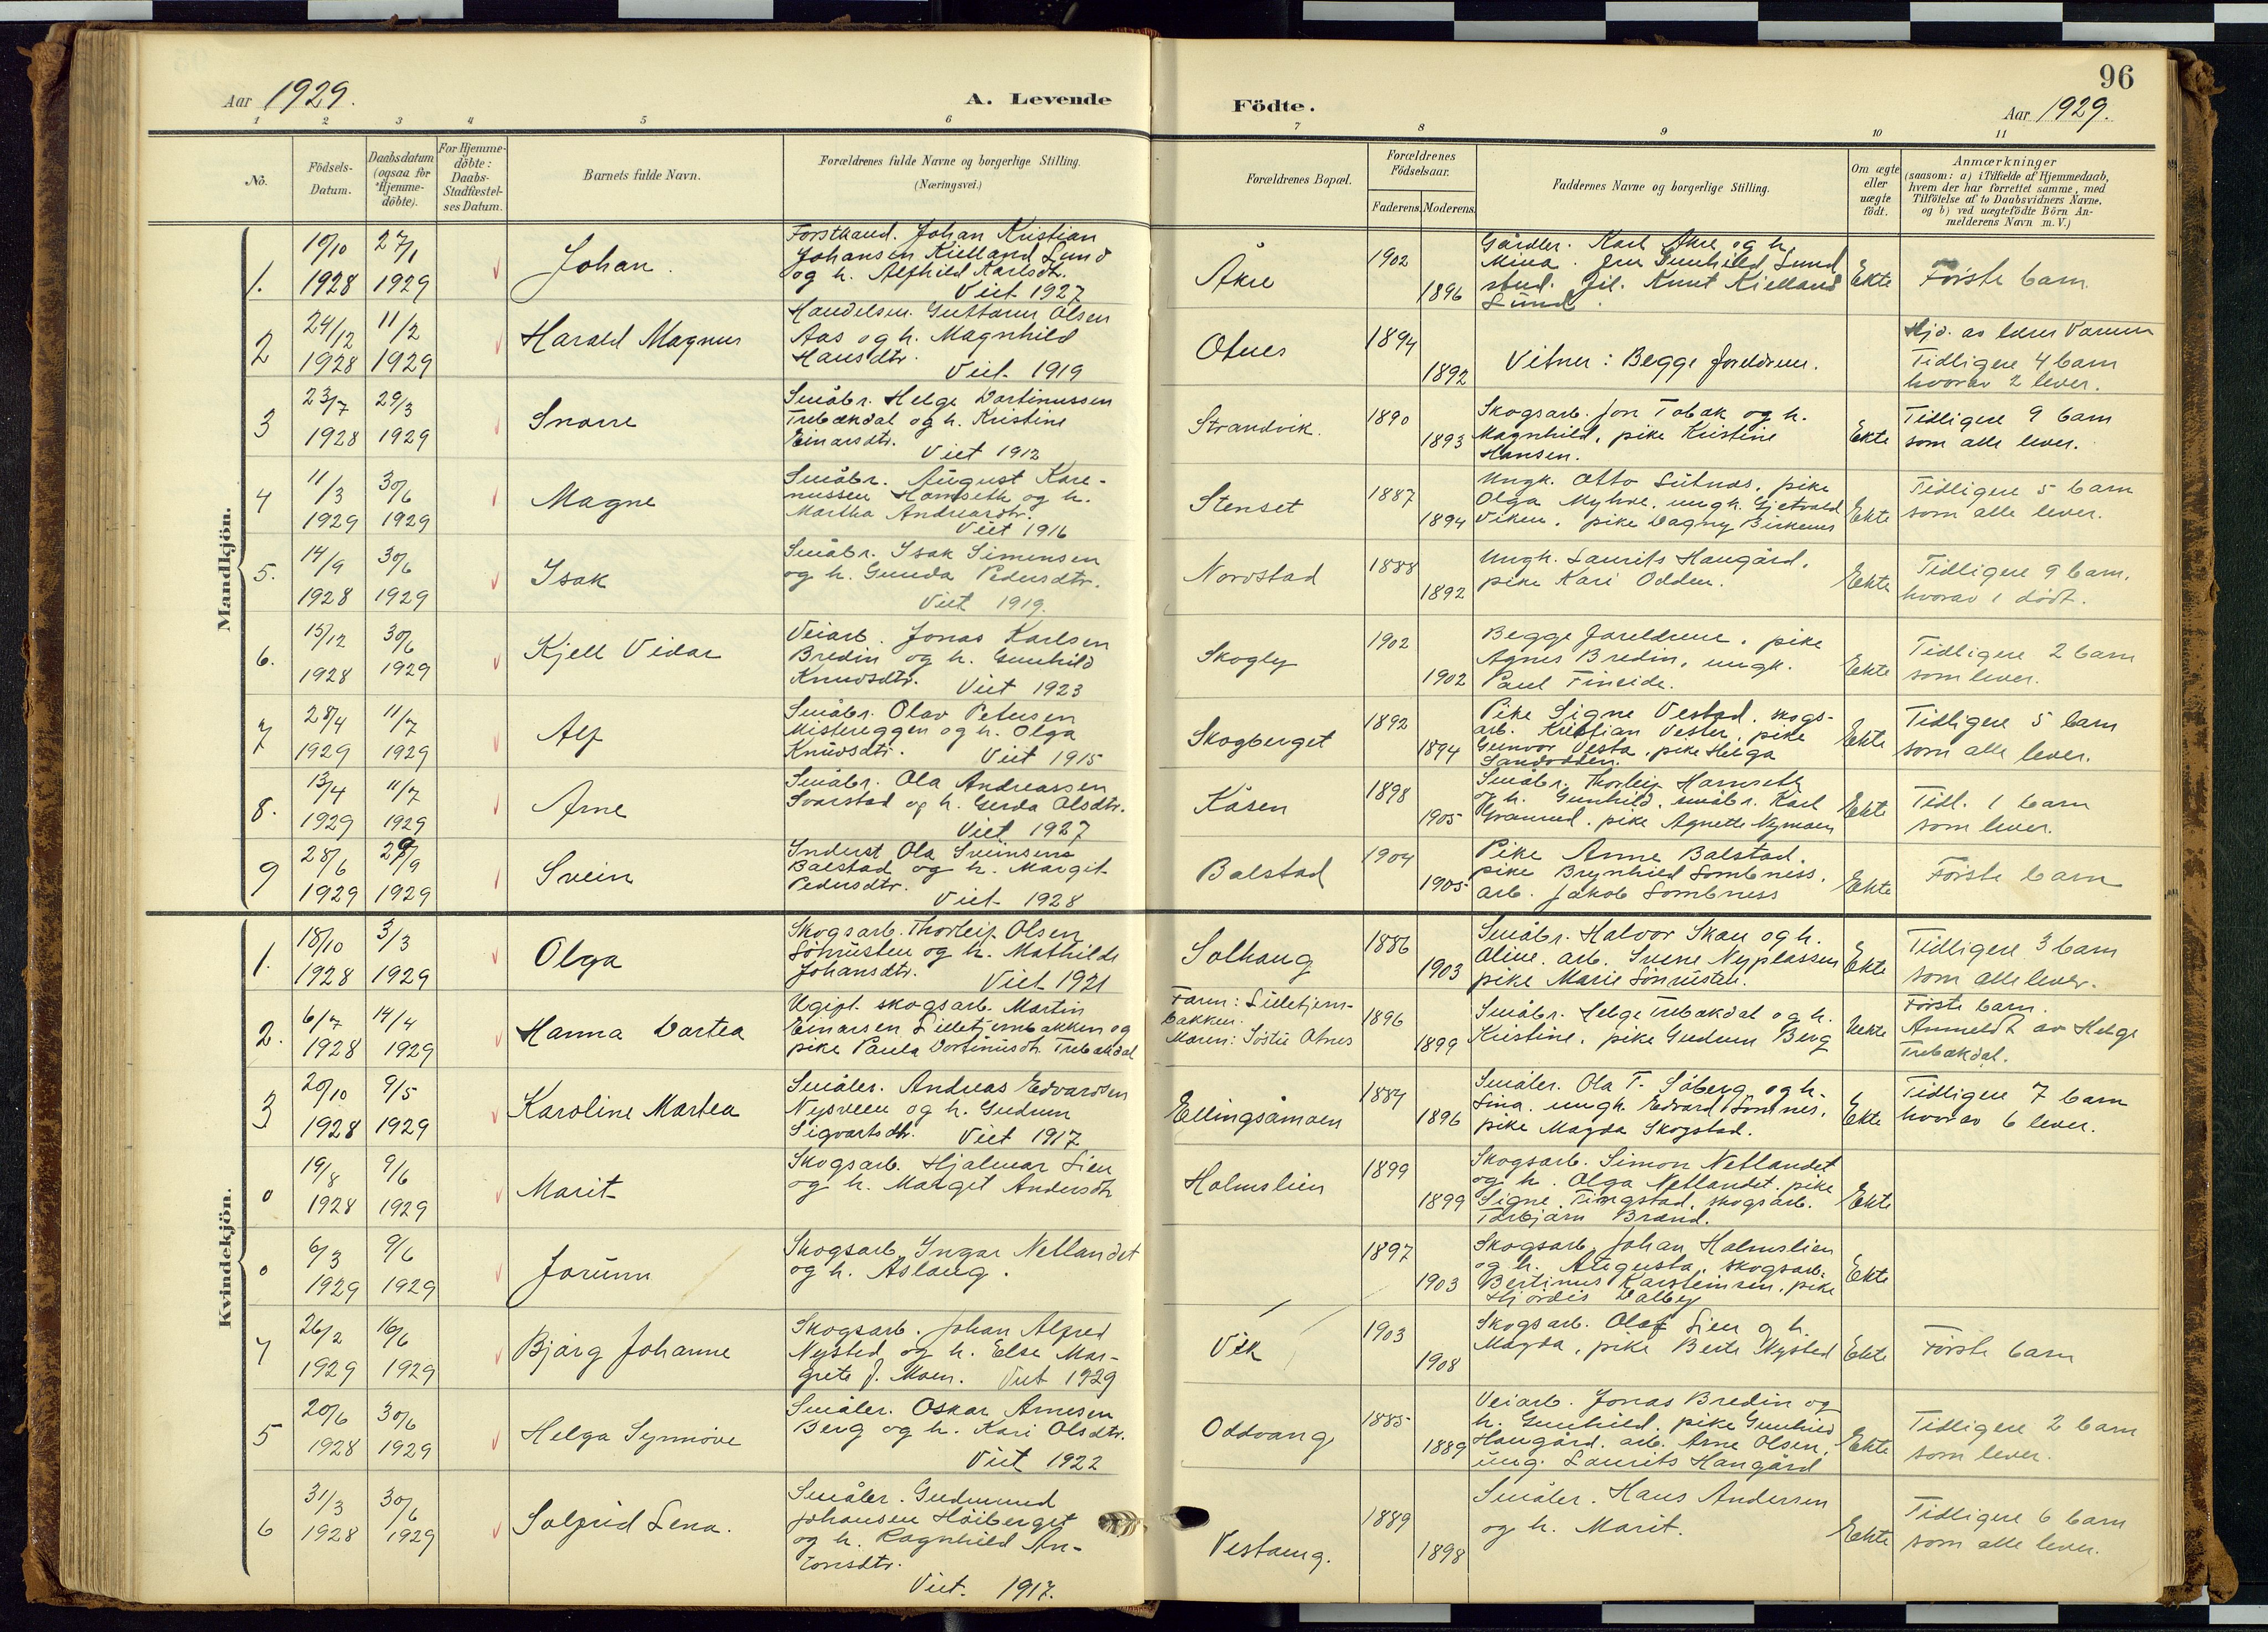 Aar 1929.
A. Levende
Födte.
96
Aar 1929.
1 2 3 4 5 6 7 8 9 10 11
No.
Födsels-
Datum.
Daabsdatum
(ogsaa for
Hjemme-
döbte).
For Hjemme-
döbte:
Daabs-
Stadfæstel-
ses Datum.
Barnets fulde Navn.
Forældrenes fulde Navne og borgerlige Stilling.
(Næringsvei.)
Forældrenes Bopæl.
Forældrenes
Födselsaar.
Faderens. Moderens.
Faddernes Navne og borgerlige Stilling.
Om ægte
eller
uægte
födt.
Anmærkninger
(saasom: a) i Tilfælde af Hjemmedaab,
hvem der har forrettet samme, med
Tilföielse af to Daabsvidners Navne,
og b) ved uægtefödte Börn An-
melderens Navn m. V.)
Mandkjön.
1.
10/10
1928
27/1
1929
Johan.
Forstkand. Johan Kristian
Johansen Kielland Lund
og h. Alfhild Karlsdtr.
Viet 1927
Åkre
1902
1896
Gårdbr. Karl Åkre og h.
Mina. fru Gunhild Lund
stud. fil. Knut Kielland
Lund.
Ekte
Förste barn.
2
24/12
1928
11/2
1929
Harald Magnus
Handelsm. Guttorm Olsen
Aas og h. Magnhild
Hansdtr.
Viet 1919
Otnes
1894
1892
Vitner: Begge foreldrene.
Hjd. av lærer
Tidligere 4 barn
hvorav 2 lever.
3
23/7
1928
29/3
1929
Snorre
Småbr. Helge Martinussen
Trebækdal og h. Kristine
Einarsdtr.
Viet 1912
Strandvik.
1890
1893
Skogsarb. Jon Tobak og h.
Magnhild, pike Kristine
Hansen.
Ekte
Tidligere 9 barn
som alle lever.
4
11/3
1929
30/6
1929
Magne
Småbr. August Kare-
nussen Hamseth og h.
Martha Andreasdtr.
Viet 1916
Stenset
1887
1894
Ungk. Otto Sütnes, pike
Olga Myhre, ungk. Gjetvald
Viken, pike Dagny Birkenes
Ekte
Tidligere 5 barn
som alle lever.
5.
14/9
1928
30/6
1929
Isak
Småbr. Isak Simensen
og h. Gunda Pedersdtr.
Viet 1919.
Nordstad
1888
1892
Ungk. Laurits Haugård,
pike Kari Odden.
Ekte
Tidligere 9 barn,
hvorav 1 död.
6.
15/12
1928
30/6
1929
Kjell Vidar
Veiarb. Jonas Karlsen
Bredin og h. Gunhild
Knudsdtr.
Viet 1923
Skogly
1902
1902
Begge foreldrene, pike
Agnes Bredin, ungk.
Paul Fineide.
Ekte
Tidligere 2 barn
som lever.
7
28/4
1929
11/7
1929
Alf
Småbr. Olav Petersen
Mistereggen og h. Olga
Knudsdtr.
Viet 1915
Skogberget
1892
1894
Pike Signe Vestad, skogs-
arb. Kristian Vester, pike
Gunvor Vesta, pike Helga
Sandodden.
Ekte
Tidligere 5 barn
som alle lever.
8.
13/4
1929
11/7
1929
Arne
Småbr. Ola Andreassen
Svarstad og h. Gerda Olsdtr.
Viet 1927
Kåsen
1898
1905
Småbr. Thorleif Hamseth
og h. Gunhild, småbr. Karl
Granrud, pike Agnethe Nymoen
Ekte
Tidl. 1 barn
som lever.
9
28/6
1929
29/9
1929
Svein
Inderst Ola Sveinsen
Balstad og h. Margit
Pedersdtr.
Viet 1928
Balstad
1904
1905
Pike Anne Balstad,
pike Brynhild Lombness,
arb. Jakob Lombness
Ekte
Förste barn
Kvindekjön.
1.
18/10
1928
3/3
1929
Olga
Skogsarb. Thorleif Olsen
Lönrusten og h. Mathilde
Johansdtr.
Viet 1921
Solhaug
1886
1903
Småbr. Halvor Skau og h.
Aline, arb. Svene Nyplassen
pike Marie Lönrusten.
Ekte
Tidligere 3 barn
som alle lever.
2.
6/7
1928
14/4
1929
Hanna Dortea
Ugift skogsarb. Martin
Einarsen Lilletjernbakken og
pike Paula Martinusdtr Trebækdal
Faren: Lilletjern-
bakken.
Moren: Söstu Otnes
1896
1899
Småbr. Helge Trebækdal og h.
Kristine, pike Gudrun Berg
Uekte
Förste barn.
Anmeldt av Helge
Trebækdal.
3
20/10
1928
9/5
1929
Karoline Martea
Småbr. Andreas Edvardsen
Nysveen og h. Gudrun
Sigvartsdtr.
Viet 1917
Ellingsåmoen
1884
1896
Småbr. Ola T. Söberg og h.
Lina, ungk. Edvard Lomnes,
pike Magda Skogstad.
Ekte
Tidligere 7 barn
hvorav 6 lever.
0
19/8
1928
9/6
1929
Marit
Skogsarb. Hjalmar Lien
og h. Marget Andersdtr
Holmslien
1899
1899
Skogsarb. Simon Netlandet
og h. Olga Netlandet, pike
Signe Tingstad, skogsarb.
Torbjörn Brænd.
Ekte
0
6/3
1929
9/6
1929
Jorunn
Skogsarb. Ingar Netlandet
og h. Aslaug.
1897
1903
Skogsarb. Johan Holmslien
og h. Augusta, skogsarb.
Bertinus Karsteinsen, pike
Hjördis Dalby
Ekte
4
26/2
1929
16/6
1929
Bjørg Johanne
Skogsarb. Johan Alfred
Nysted og h. Else Mar-
grete J. Moen. Viet 1929
Vik
1903
1908
Skogsarb. Olaf Lien og h.
Magda, pike Berte Nysted
Ekte
Förste barn
5
20/6
1928
30/6
1929
Helga Synnöve
Småbr. Oskar Arnesen
Berg og h. Kari Olsdtr.
Viet 1922
Oddvang
1885
1889
Veiarb. Jonas Bredin og
h. Gunhild, pike Gunhild
Haugård, arb. Arne Olsen,
ung. Laurits Haugård
Ekte
Tidligere 2 barn
som lever.
6
31/3
1928
30/6
1929
Solfrid Lena.
Småbr. Gudmund
Johansen Höiberget
og h. Ragnhild An-
tonsdtr.
Viet. 1917.
Vestaug.
1889
1898
Småbr. Hans Andersen
og h. Marit.
Ekte
Tidligere 6 barn
som alle lever.